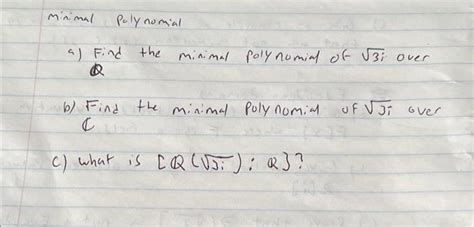 minimal polynomial
a) Find the minimal polynomial of √3i over
ℚ
b) Find the minimal polynomial of √3i over
ℂ
c) what is [ℚ(√3i) : ℚ]?